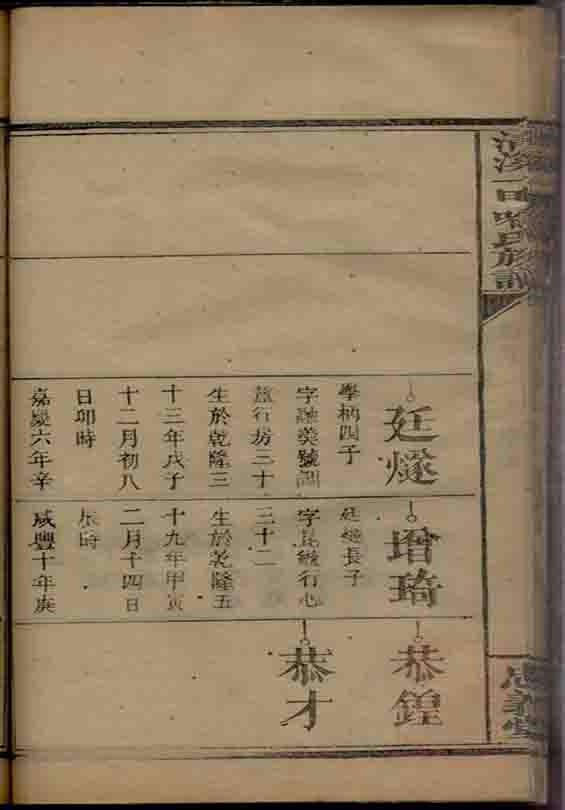 氏族譜
廷燧
學柄四子
字融美號
行芳三十
生於乾隆三
十三年戊子
十二月初八
日卯時
嘉慶六年辛
增琦
廷燧長子
字 行心
三十二
生於乾隆五
十九年甲寅
二月十四日
辰時
咸豐十年庚
恭鍠
恭才
忠義堂